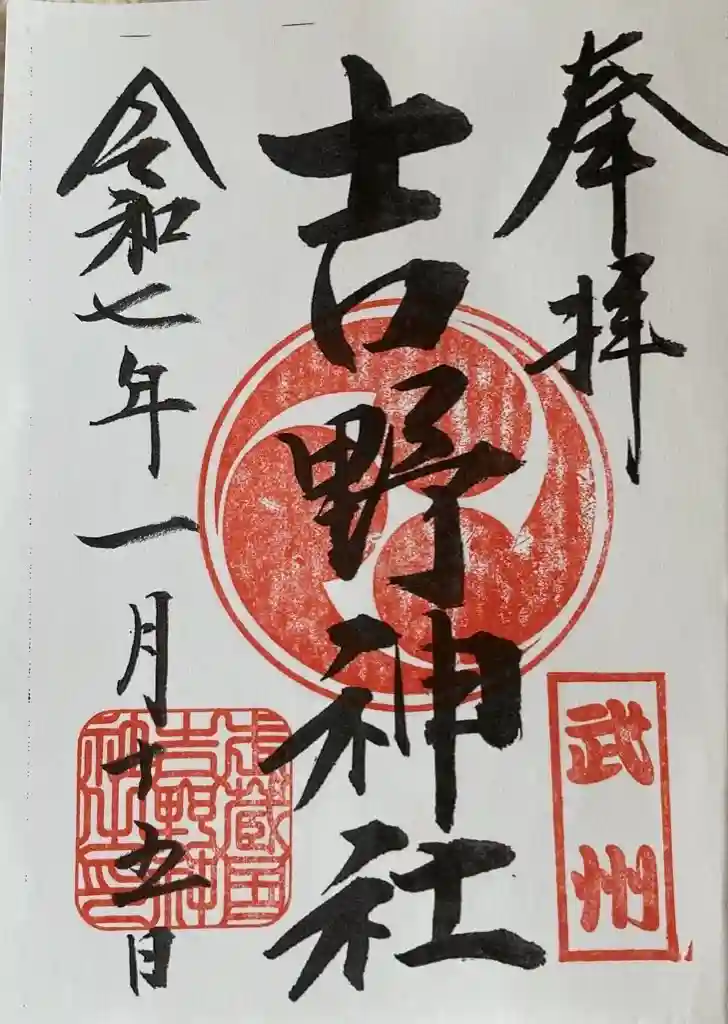 奉拝
武州
吉野神社
令和七年一月十五日
武蔵国
吉野神
社之印